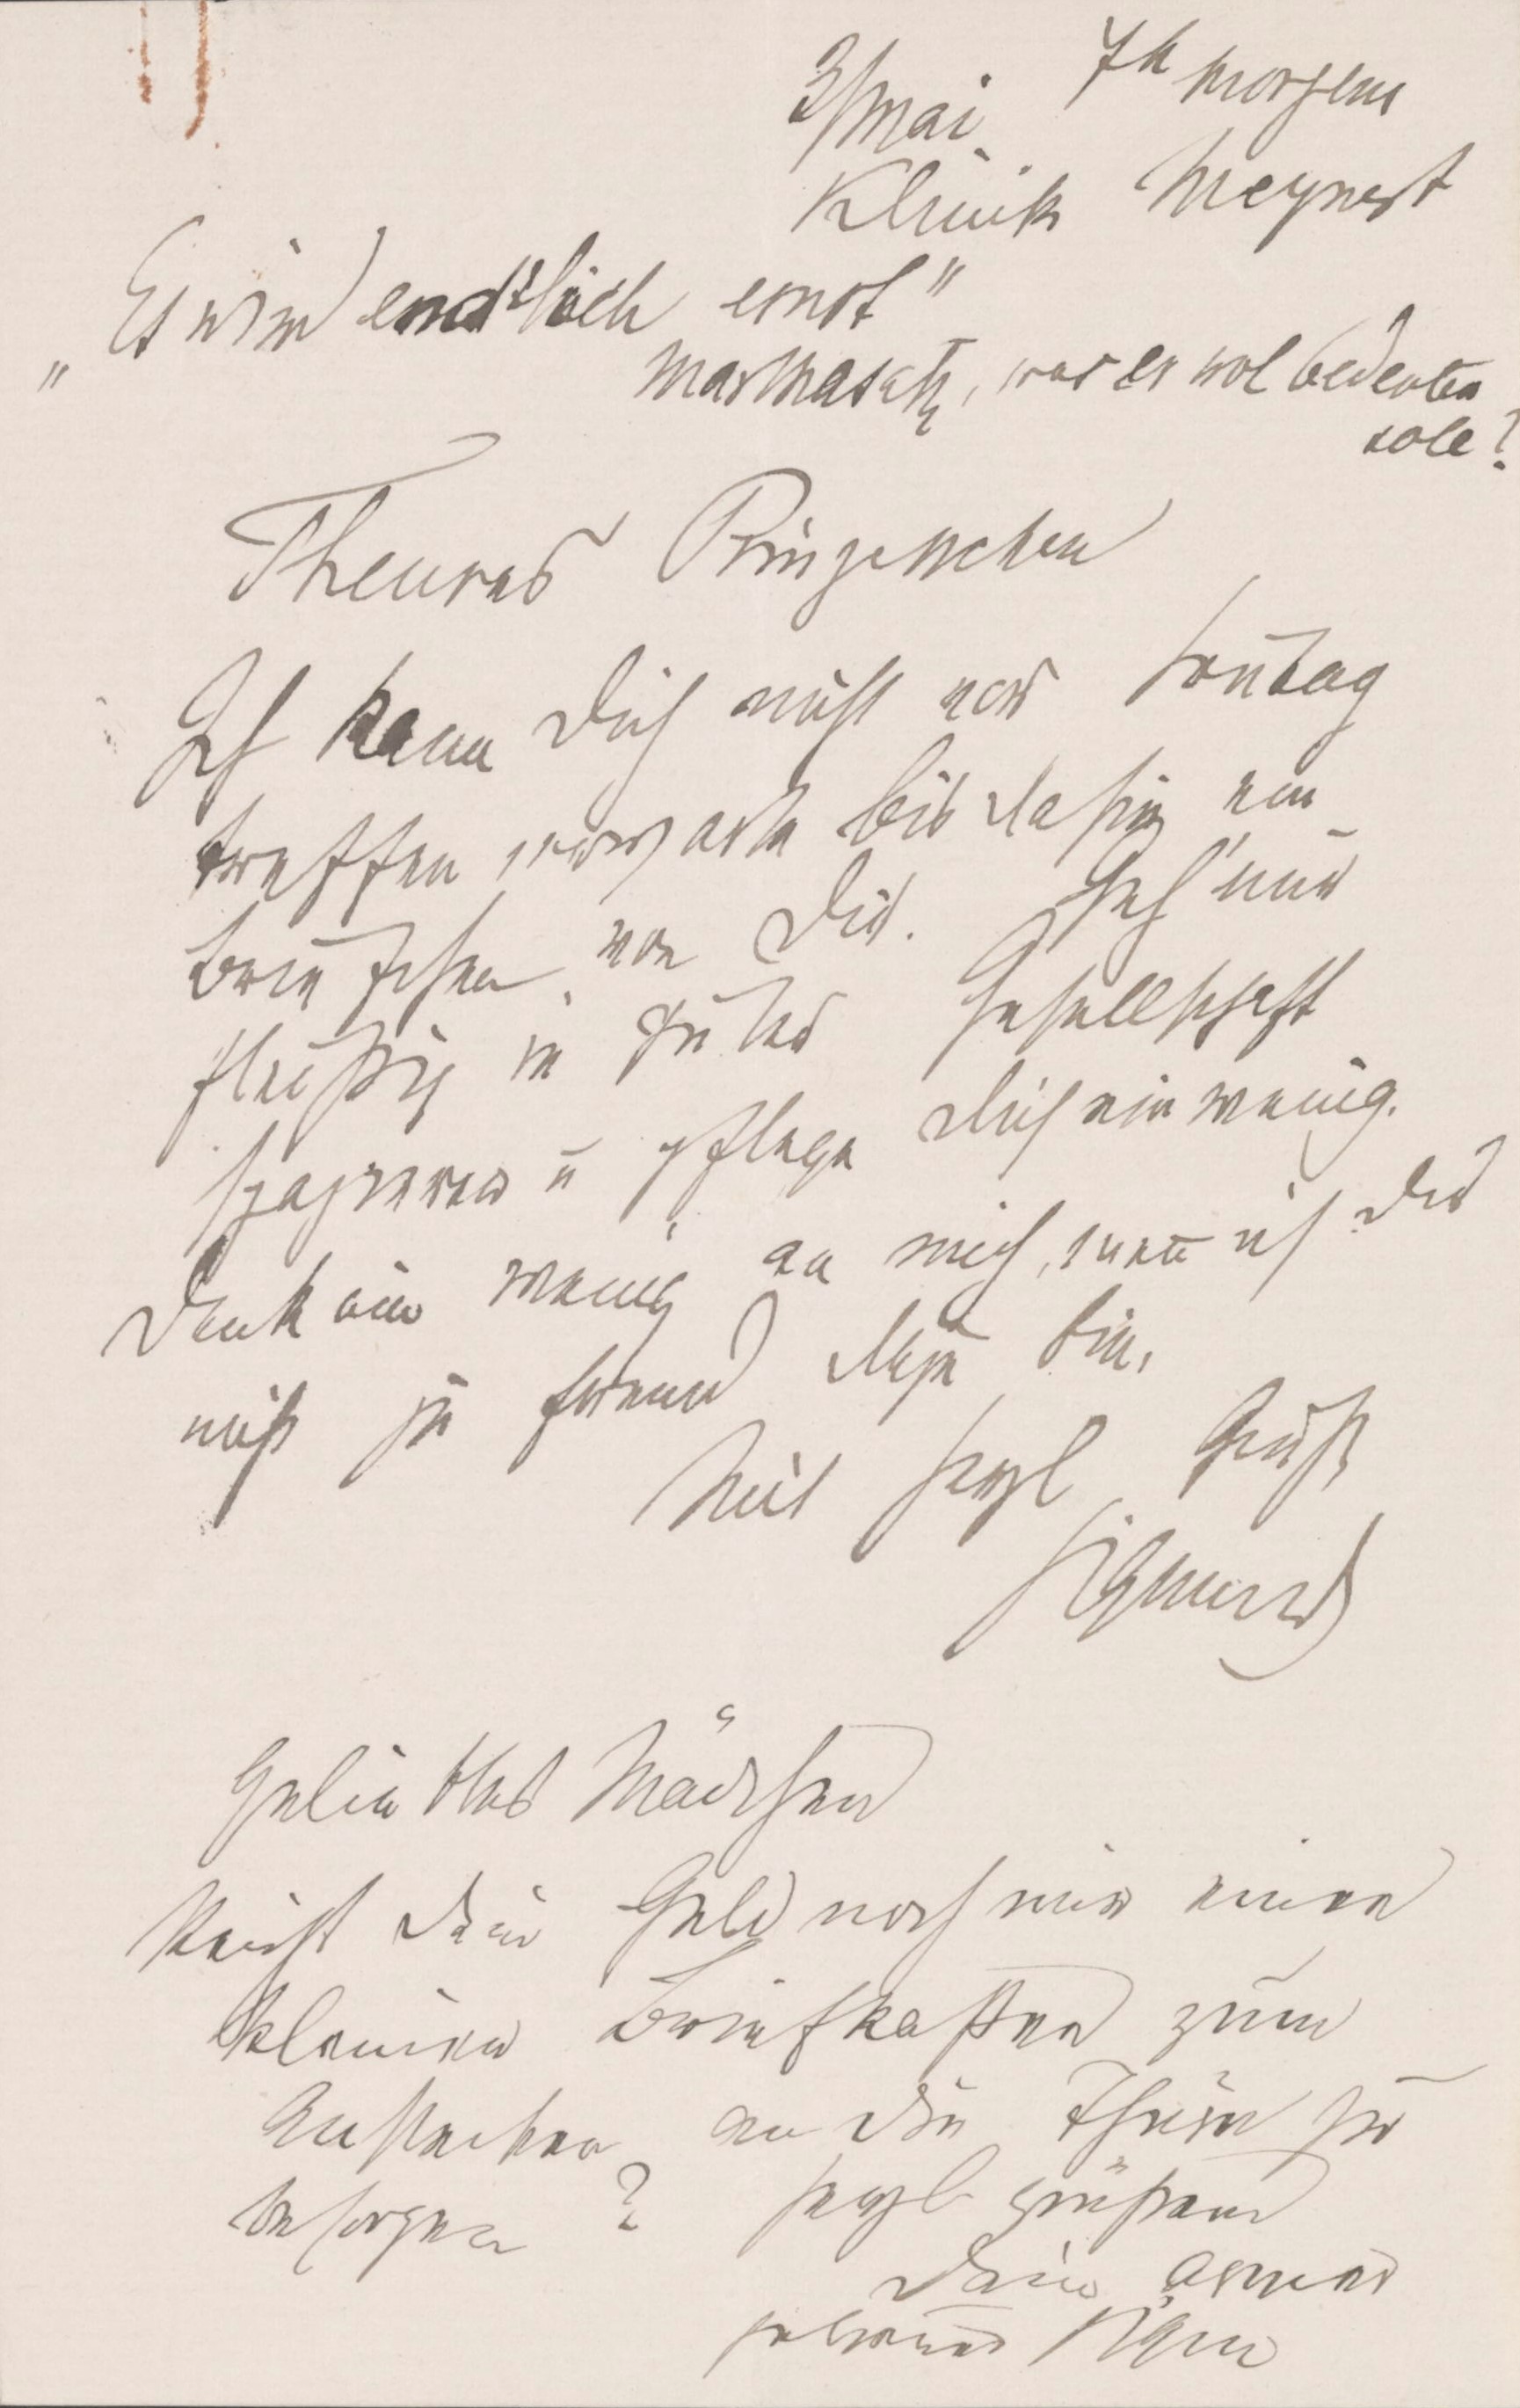 3/Mai 7h morgens
Klinik Meynert
„Es wird endlich ernst“
Marthasatz, was er wol bedeuten
solle?
Theures Prinzesschen
Ich kann Dich nicht vor Sontag
treffen, erwarte bis dahin ein
Briefchen von Dir. Geh' nur
fleißig in guter Gesellschaft
spazieren u pflege Dich ein wenig.
Denk ein wenig an mich, wenn ich Dir
nicht zu fremd dazu bin.
Mit herzl Gruß
Sigmund
Geliebtes Mädchen
Reicht Dein Geld noch mir einen
kleinen Briefkasten zum
Anstecken an die Thüre zu
besorgen? herzl grüßend
Dein armer